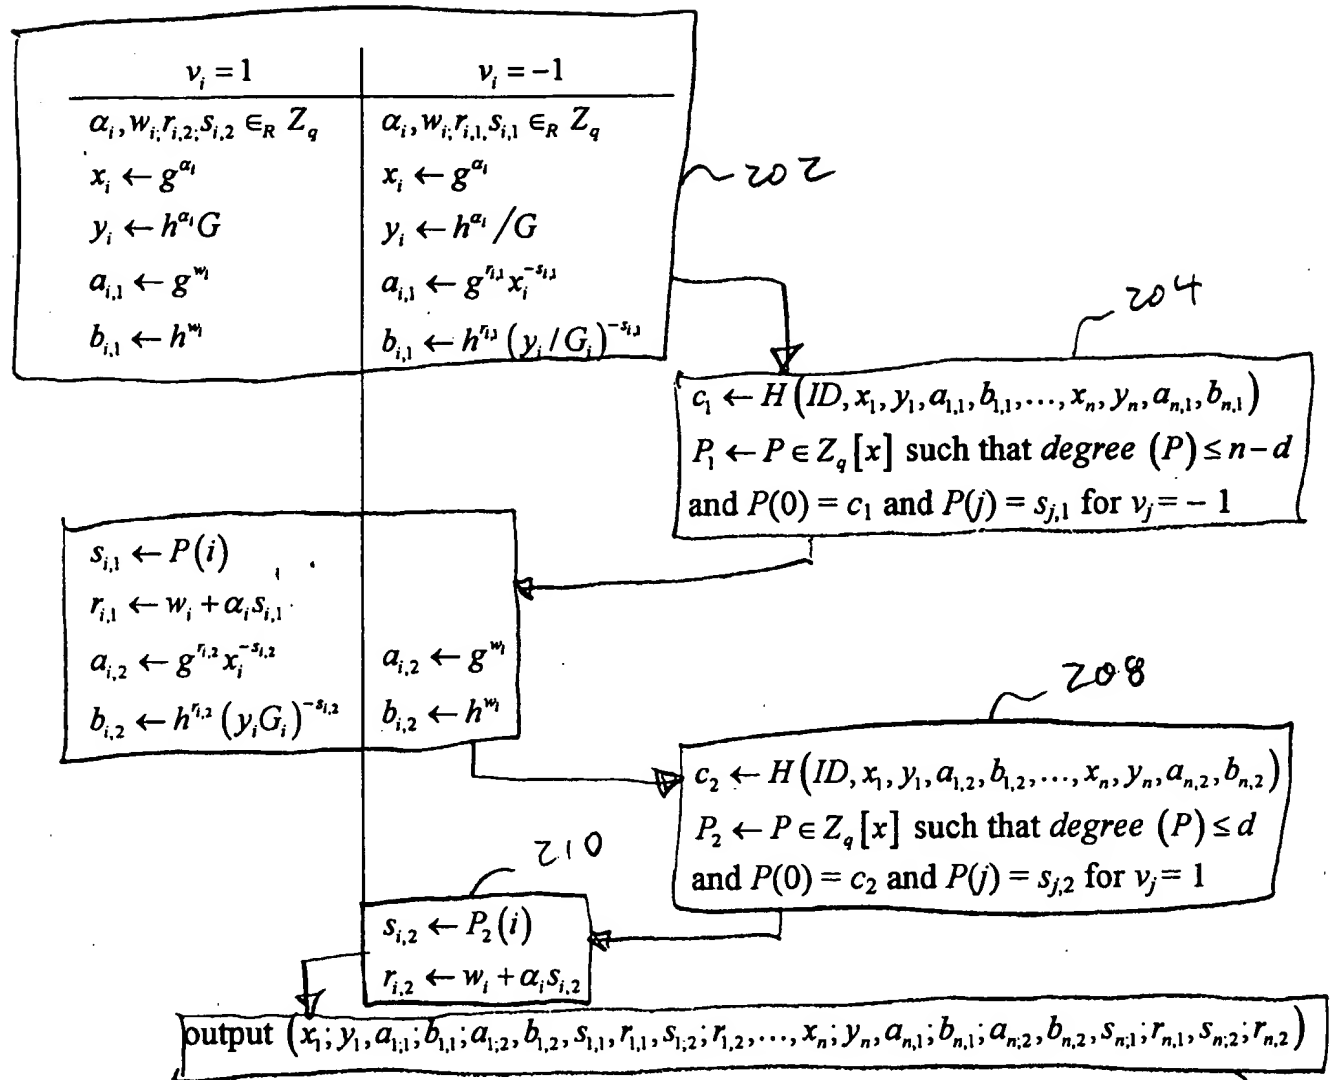 v_i = 1 v_i = -1
α_i, w_i; r_{i,2}; s_{i,2} ∈_R Z_q α_i, w_i; r_{i,1}, s_{i,1} ∈_R Z_q
x_i ← g^{α_i} x_i ← g^{α_i}
202
y_i ← h^{α_i}G y_i ← h^{α_i}/G
a_{i,1} ← g^{w_i} a_{i,1} ← g^{r_{i,1}} x_i^{-s_{i,1}}
b_{i,1} ← h^{w_i} b_{i,1} ← h^{r_{i,1}} (y_i/G_i)^{-s_{i,1}}
204
c_1 ← H(ID, x_1, y_1, a_{1,1}, b_{1,1}, ..., x_n, y_n, a_{n,1}, b_{n,1})
P_1 ← P ∈ Z_q[x] such that degree (P) ≤ n-d
and P(0) = c_1 and P(j) = s_{j,1} for v_j = - 1
s_{i,1} ← P(i)
r_{i,1} ← w_i + α_i s_{i,1}
a_{i,2} ← g^{r_{i,2}} x_i^{-s_{i,2}} a_{i,2} ← g^{w_i}
b_{i,2} ← h^{r_{i,2}} (y_i G_i)^{-s_{i,2}} b_{i,2} ← h^{w_i}
208
c_2 ← H(ID, x_1, y_1, a_{1,2}, b_{1,2}, ..., x_n, y_n, a_{n,2}, b_{n,2})
P_2 ← P ∈ Z_q[x] such that degree (P) ≤ d
and P(0) = c_2 and P(j) = s_{j,2} for v_j = 1
210
s_{i,2} ← P_2(i)
r_{i,2} ← w_i + α_i s_{i,2}
output (x_1; y_1, a_{1;1}; b_{1,1}; a_{1;2}, b_{1,2}, s_{1,1}, r_{1,1}, s_{1;2}; r_{1,2}, ..., x_n; y_n, a_{n,1}; b_{n,1}; a_{n;2}, b_{n,2}, s_{n;1}; r_{n,1}, s_{n;2}; r_{n,2})